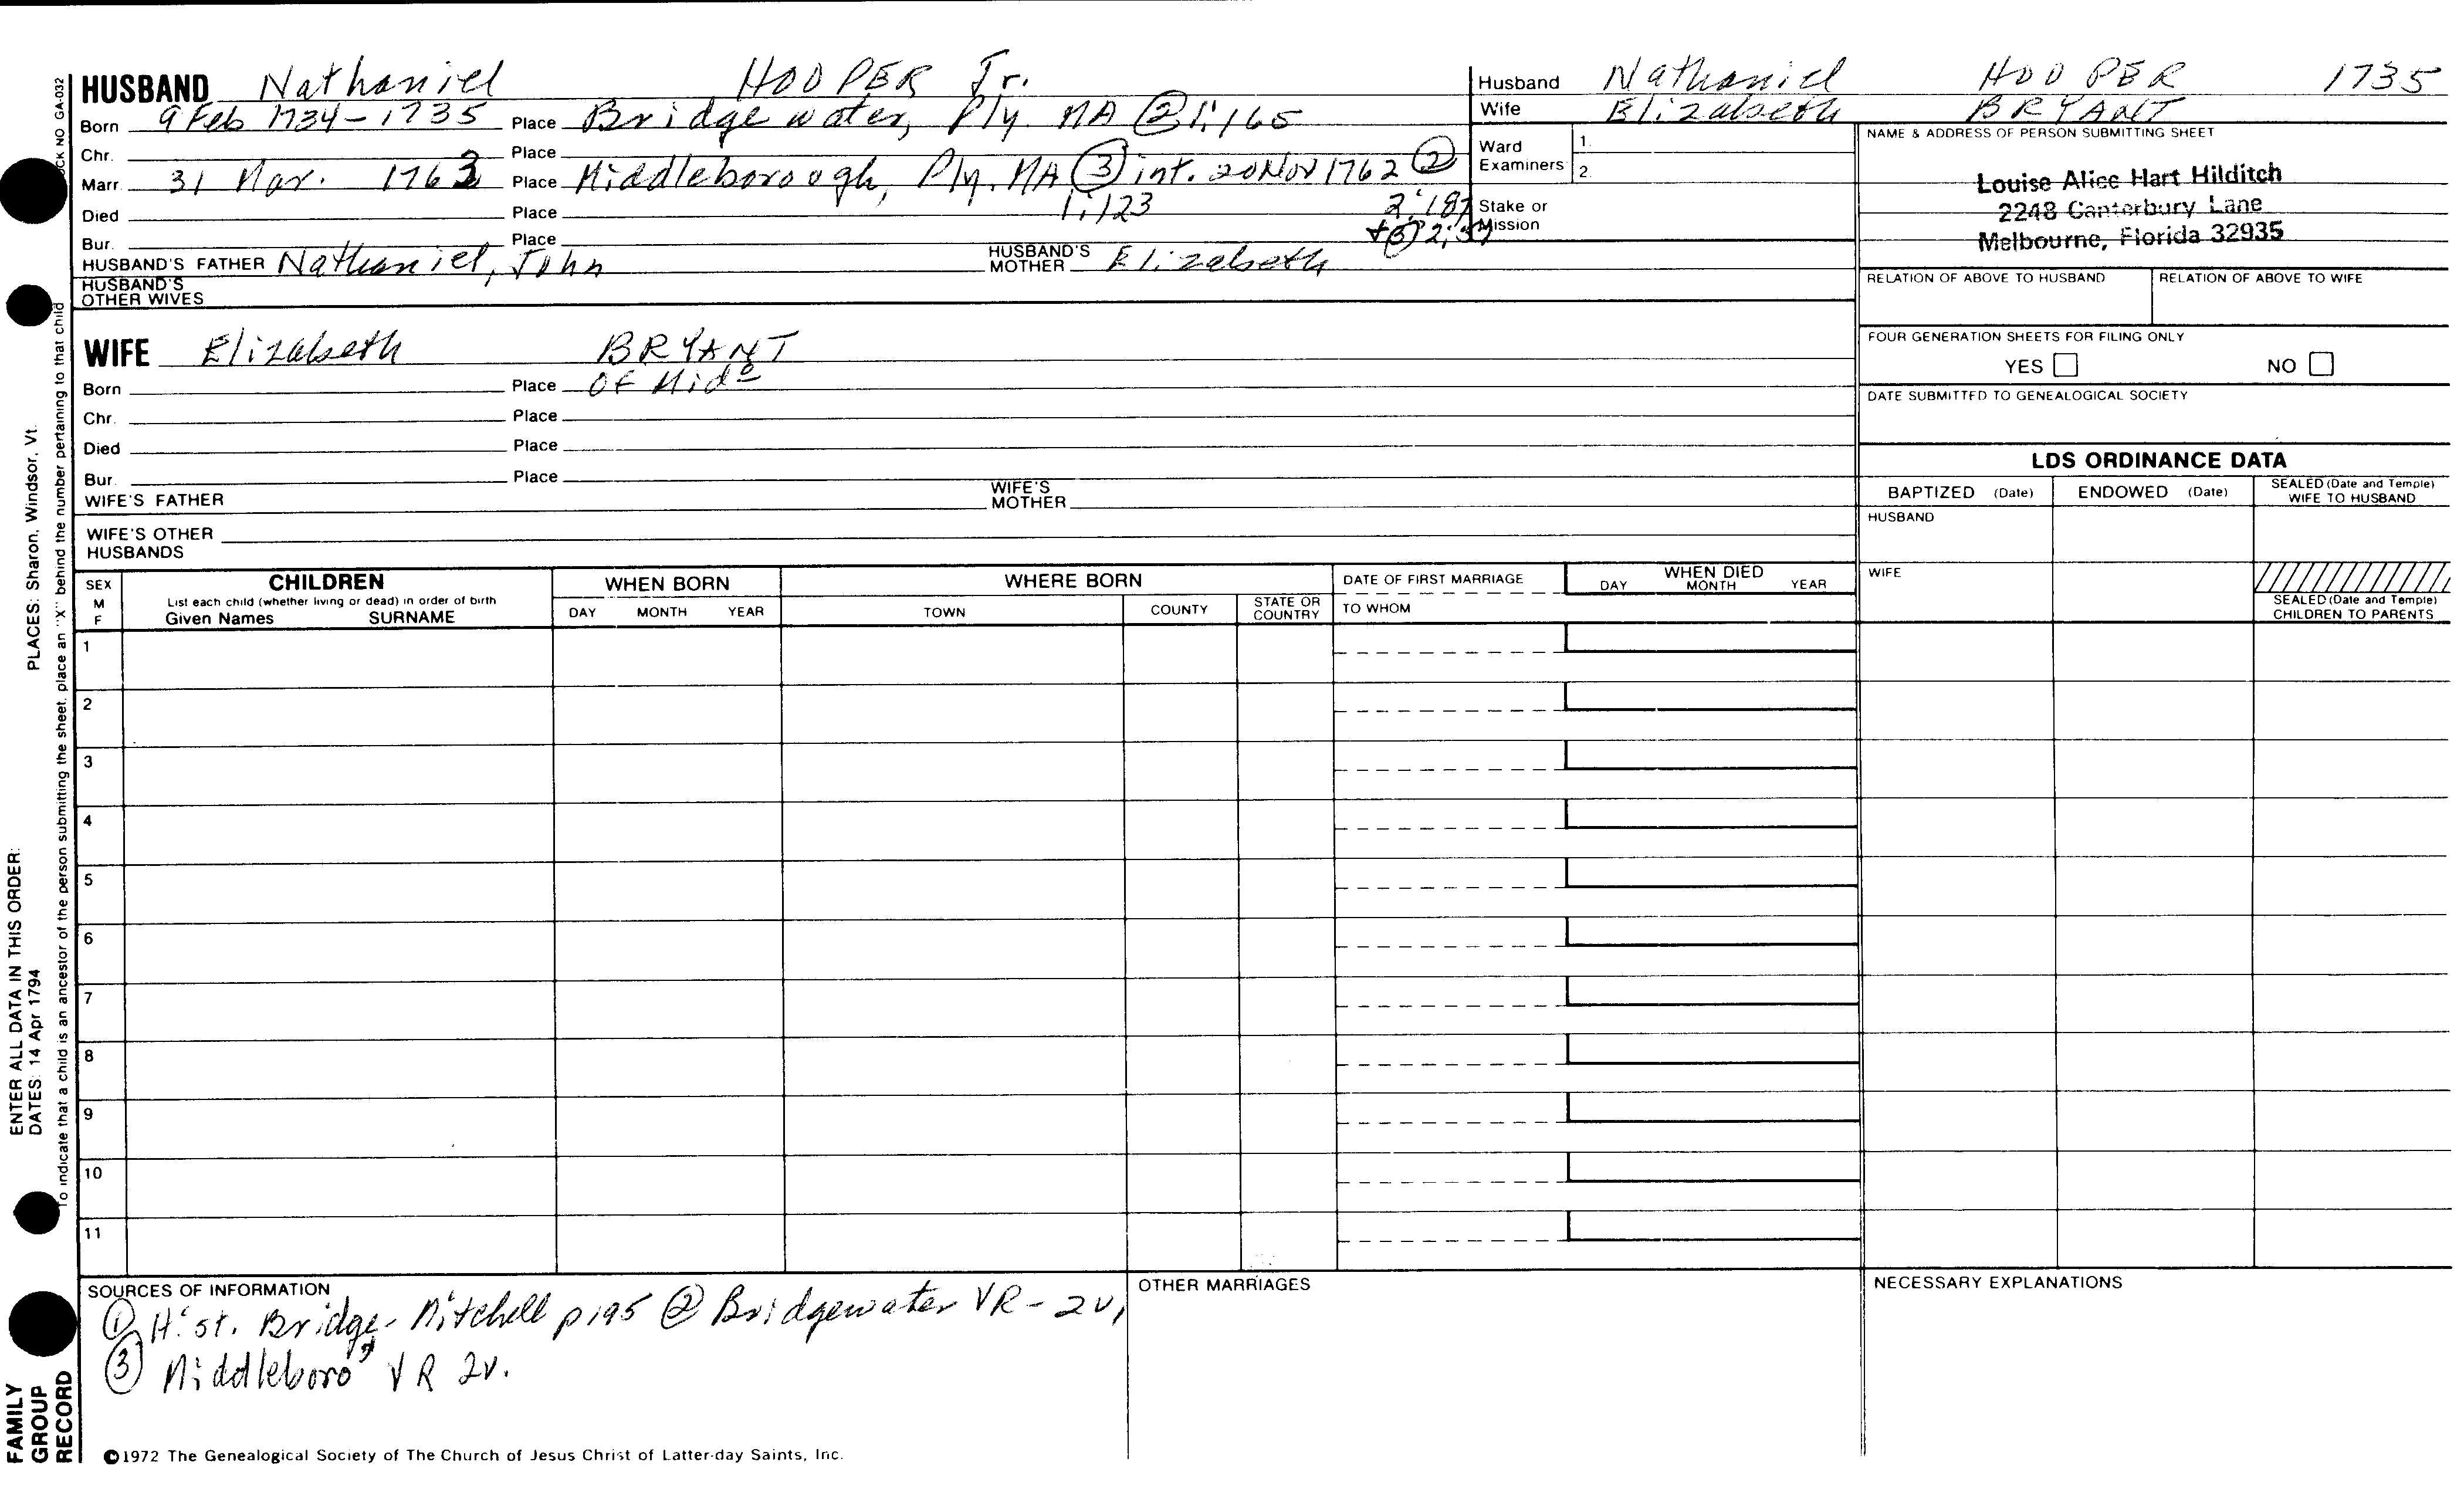 HUSBAND Nathaniel HOOPER Jr.
Born 9 Feb 1734-1735 Place Bridgewater, Ply. MA ② 1:165
Chr. Place
Marr. 31 Mar. 1763 Place Middleborough, Ply. MA ③ int. 20 Nov 1762 ②
1:123 2:187
Died Place
Bur. Place
HUSBAND'S FATHER Nathaniel, John HUSBAND'S MOTHER Elizabeth
HUSBAND'S OTHER WIVES
WIFE Elizabeth BRYANT
Born Place Of Midº
Chr. Place
Died Place
Bur. Place
WIFE'S FATHER WIFE'S MOTHER
WIFE'S OTHER HUSBANDS
Husband Nathaniel HOOPER 1735
Wife Elizabeth BRYANT
Ward Examiners 1. 2.
Stake or Mission
NAME & ADDRESS OF PERSON SUBMITTING SHEET
Louise Alice Hart Hilditch
2248 Canterbury Lane
Melbourne, Florida 32935
RELATION OF ABOVE TO HUSBAND RELATION OF ABOVE TO WIFE
FOUR GENERATION SHEETS FOR FILING ONLY
YES NO
DATE SUBMITTED TO GENEALOGICAL SOCIETY
LDS ORDINANCE DATA
BAPTIZED (Date) ENDOWED (Date) SEALED (Date and Temple) WIFE TO HUSBAND
HUSBAND
WIFE
SEALED (Date and Temple) CHILDREN TO PARENTS
SEX M F
CHILDREN
List each child (whether living or dead) in order of birth
Given Names SURNAME
WHEN BORN
DAY MONTH YEAR
WHERE BORN
TOWN COUNTY STATE OR COUNTRY
DATE OF FIRST MARRIAGE
TO WHOM
WHEN DIED
DAY MONTH YEAR
1
2
3
4
5
6
7
8
9
10
11
SOURCES OF INFORMATION
① Hist. Bridge- Mitchell p195 ② Bridgewater VR - 2v,
③ Middleboro VR 2v.
OTHER MARRIAGES
NECESSARY EXPLANATIONS
©1972 The Genealogical Society of The Church of Jesus Christ of Latter-day Saints, Inc.
FAMILY
GROUP
RECORD
ENTER ALL DATA IN THIS ORDER:
DATES: 14 Apr 1794 PLACES: Sharon, Windsor, Vt.
To indicate that a child is an ancestor of the person submitting the sheet, place an "X" behind the number pertaining to that child
NO GA-032